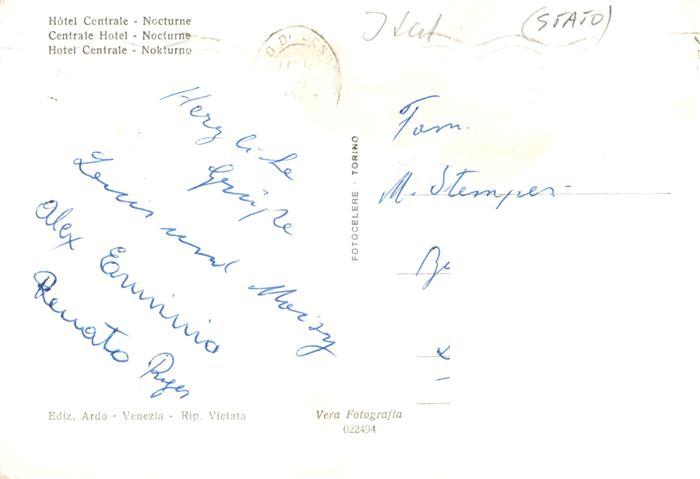 Hôtel Centrale - Nocturne
Centrale Hotel - Nocturne
Hotel Centrale - Nokturno
(STATO)
Herzliche
Grüße
und Moisy
Alex Erminio
Renato
Fam.
M. Stemper
FOTOCELERE · TORINO
Ediz. Ardo - Venezia - Rip. Vietata
Vera Fotografia
022494